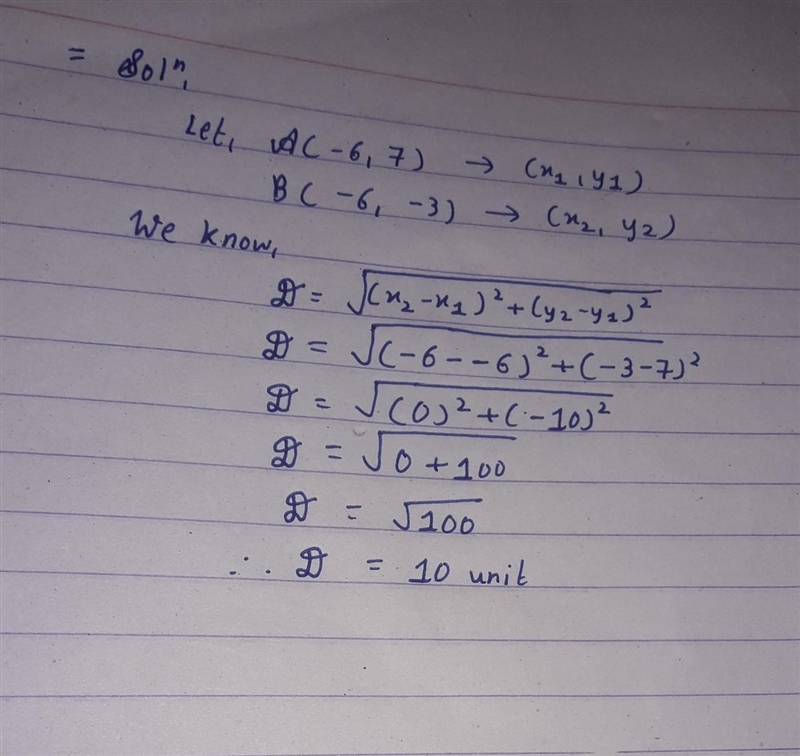 = Solⁿ,
Let, A(-6, 7) → (x₁, y₁)
B(-6, -3) → (x₂, y₂)
We know,
D = √(x₂-x₁)²+(y₂-y₁)²
D = √(-6--6)²+(-3-7)²
D = √(0)²+(-10)²
D = √0+100
D = √100
∴ D = 10 unit